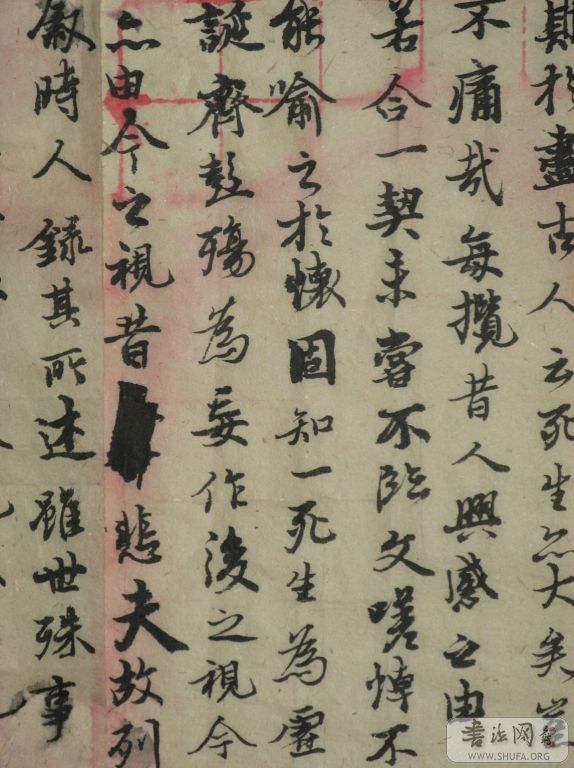 期於盡古人云死生亦大矣豈
不痛哉每攬昔人興感之由
若合一契未嘗不臨文嗟悼不
能喻之於懷固知一死生為虛
誕齊彭殤為妄作後之視今
亦由今之視昔悲夫故列
敘時人錄其所述雖世殊事
書法网
WWW.SHUFA.ORG